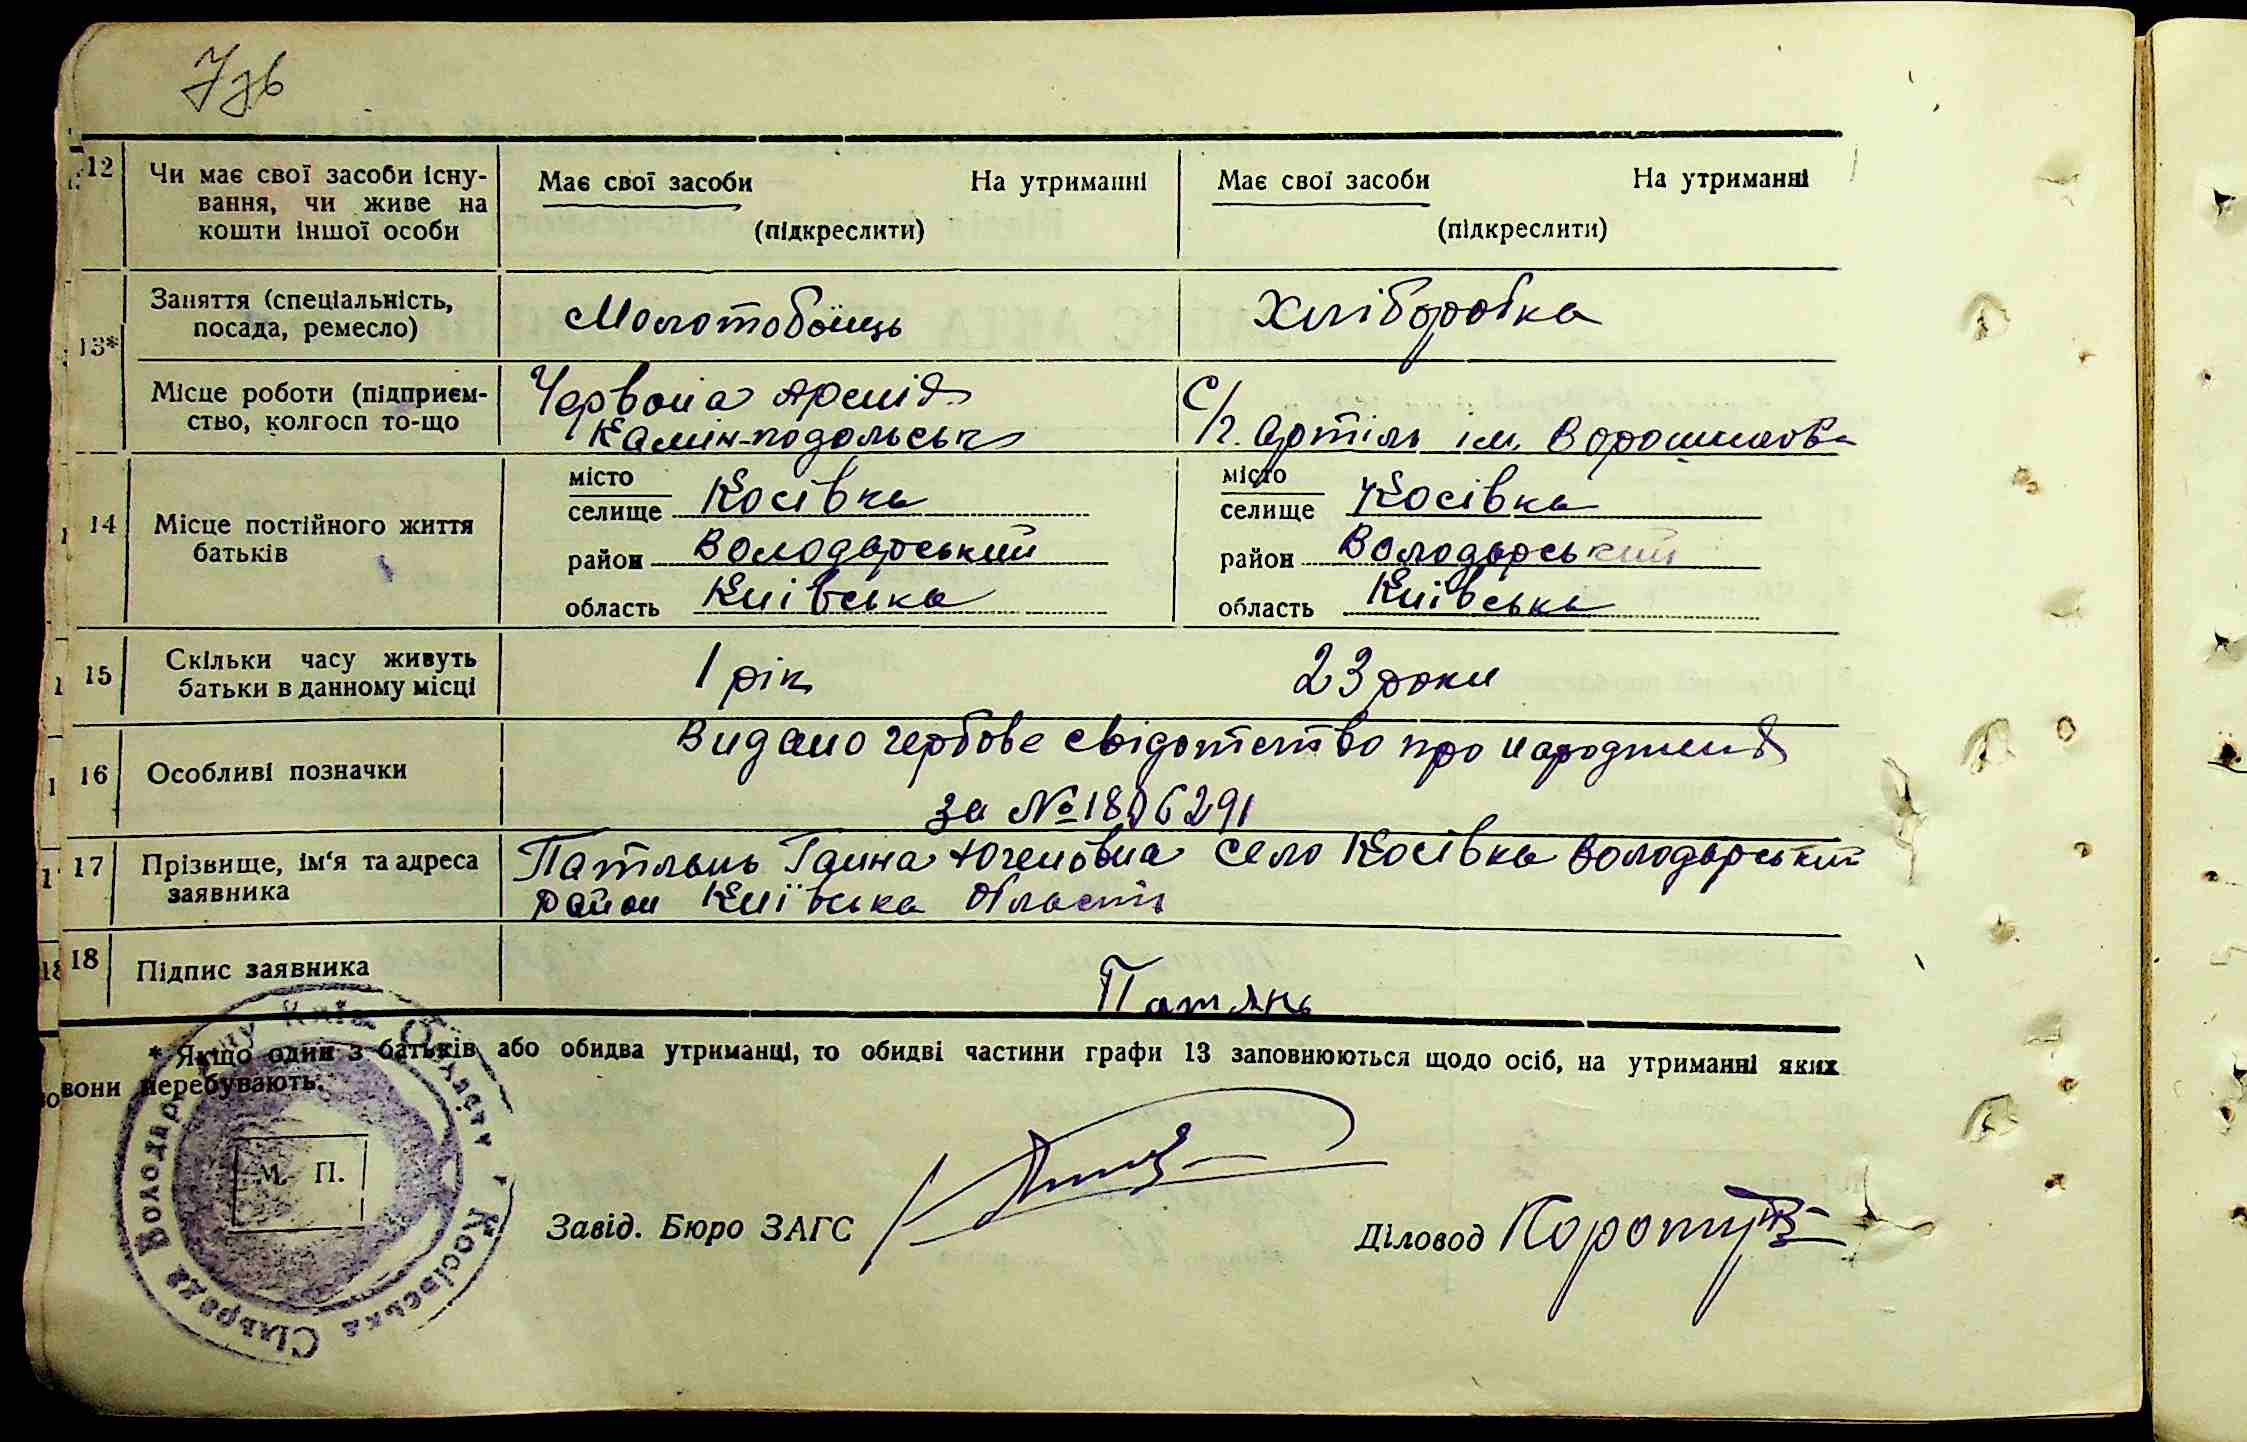 7 зв
12 Чи має свої засоби існу-
вання, чи живе на
кошти іншої особи
Має свої засоби На утриманні
(підкреслити)
Має свої засоби На утриманні
(підкреслити)
13* Заняття (спеціальність,
посада, ремесло)
Молотобоїць
Хліборобка
Місце роботи (підприєм-
ство, колгосп то-що
Червона Армія
Камін-подольськ
С/г. артіль ім. Ворошилова
14 Місце постійного життя
батьків
місто
селище Косівка
район Володарський
область Київська
місто
селище Косівка
район Володарський
область Київська
15 Скільки часу живуть
батьки в данному місці
1 рік
23 роки
16 Особливі позначки
Видано гербове свідотство про народження
за № 1806291
17 Прізвище, ім'я та адреса
заявника
Патлань Ганна село Косівка Володарський
район Київська область
18 Підпис заявника
* Якщо один з батьків або обидва утриманці, то обидві частини графи 13 заповнюються щодо осіб, на утриманні яких
вони перебувають.
М. П.
Косівська Сільрада Володар Області
Завід. Бюро ЗАГС
Діловод